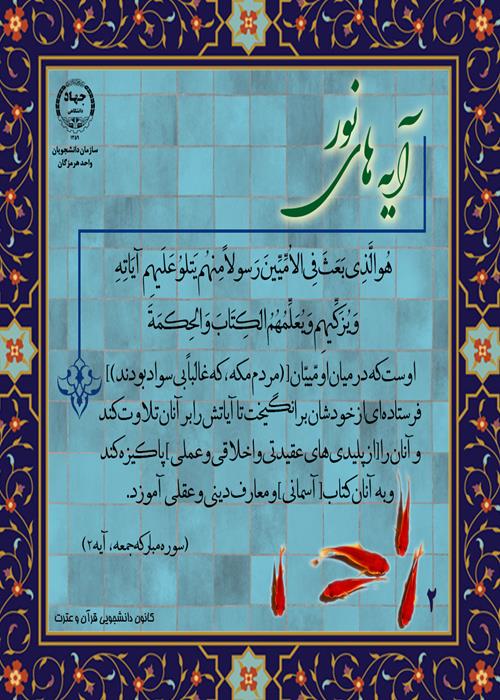 جهاد
دانشگاهی
۱۳۵۹
سازمان دانشجویان
واحد هرمزگان
آیه های نور
هُوَ الَّذِی بَعَثَ فِی الاُمِّیِّینَ رَسولاً مِنهُم یَتلوُ عَلَیهِم آیَاتِهِ
وَیُزَکِّیهِم وَیُعَلِّمُهُمُ الکِتَابَ وَالحِکمَةَ
اوست که در میان اومّییّان [(مردم مکه، که غالباً بی سواد بودند)]
فرستاده ای از خودشان برانگیخت تا آیاتش را بر آنان تلاوت کند
و آنان را [از پلیدی های عقیدتی و اخلاقی و عملی] پاکیزه کند
و به آنان کتاب [آسمانی] و معارف دینی و عقلی آموزد.
(سوره مبارکه جمعه، آیه ۲)
۲
کانون دانشجویی قرآن و عترت